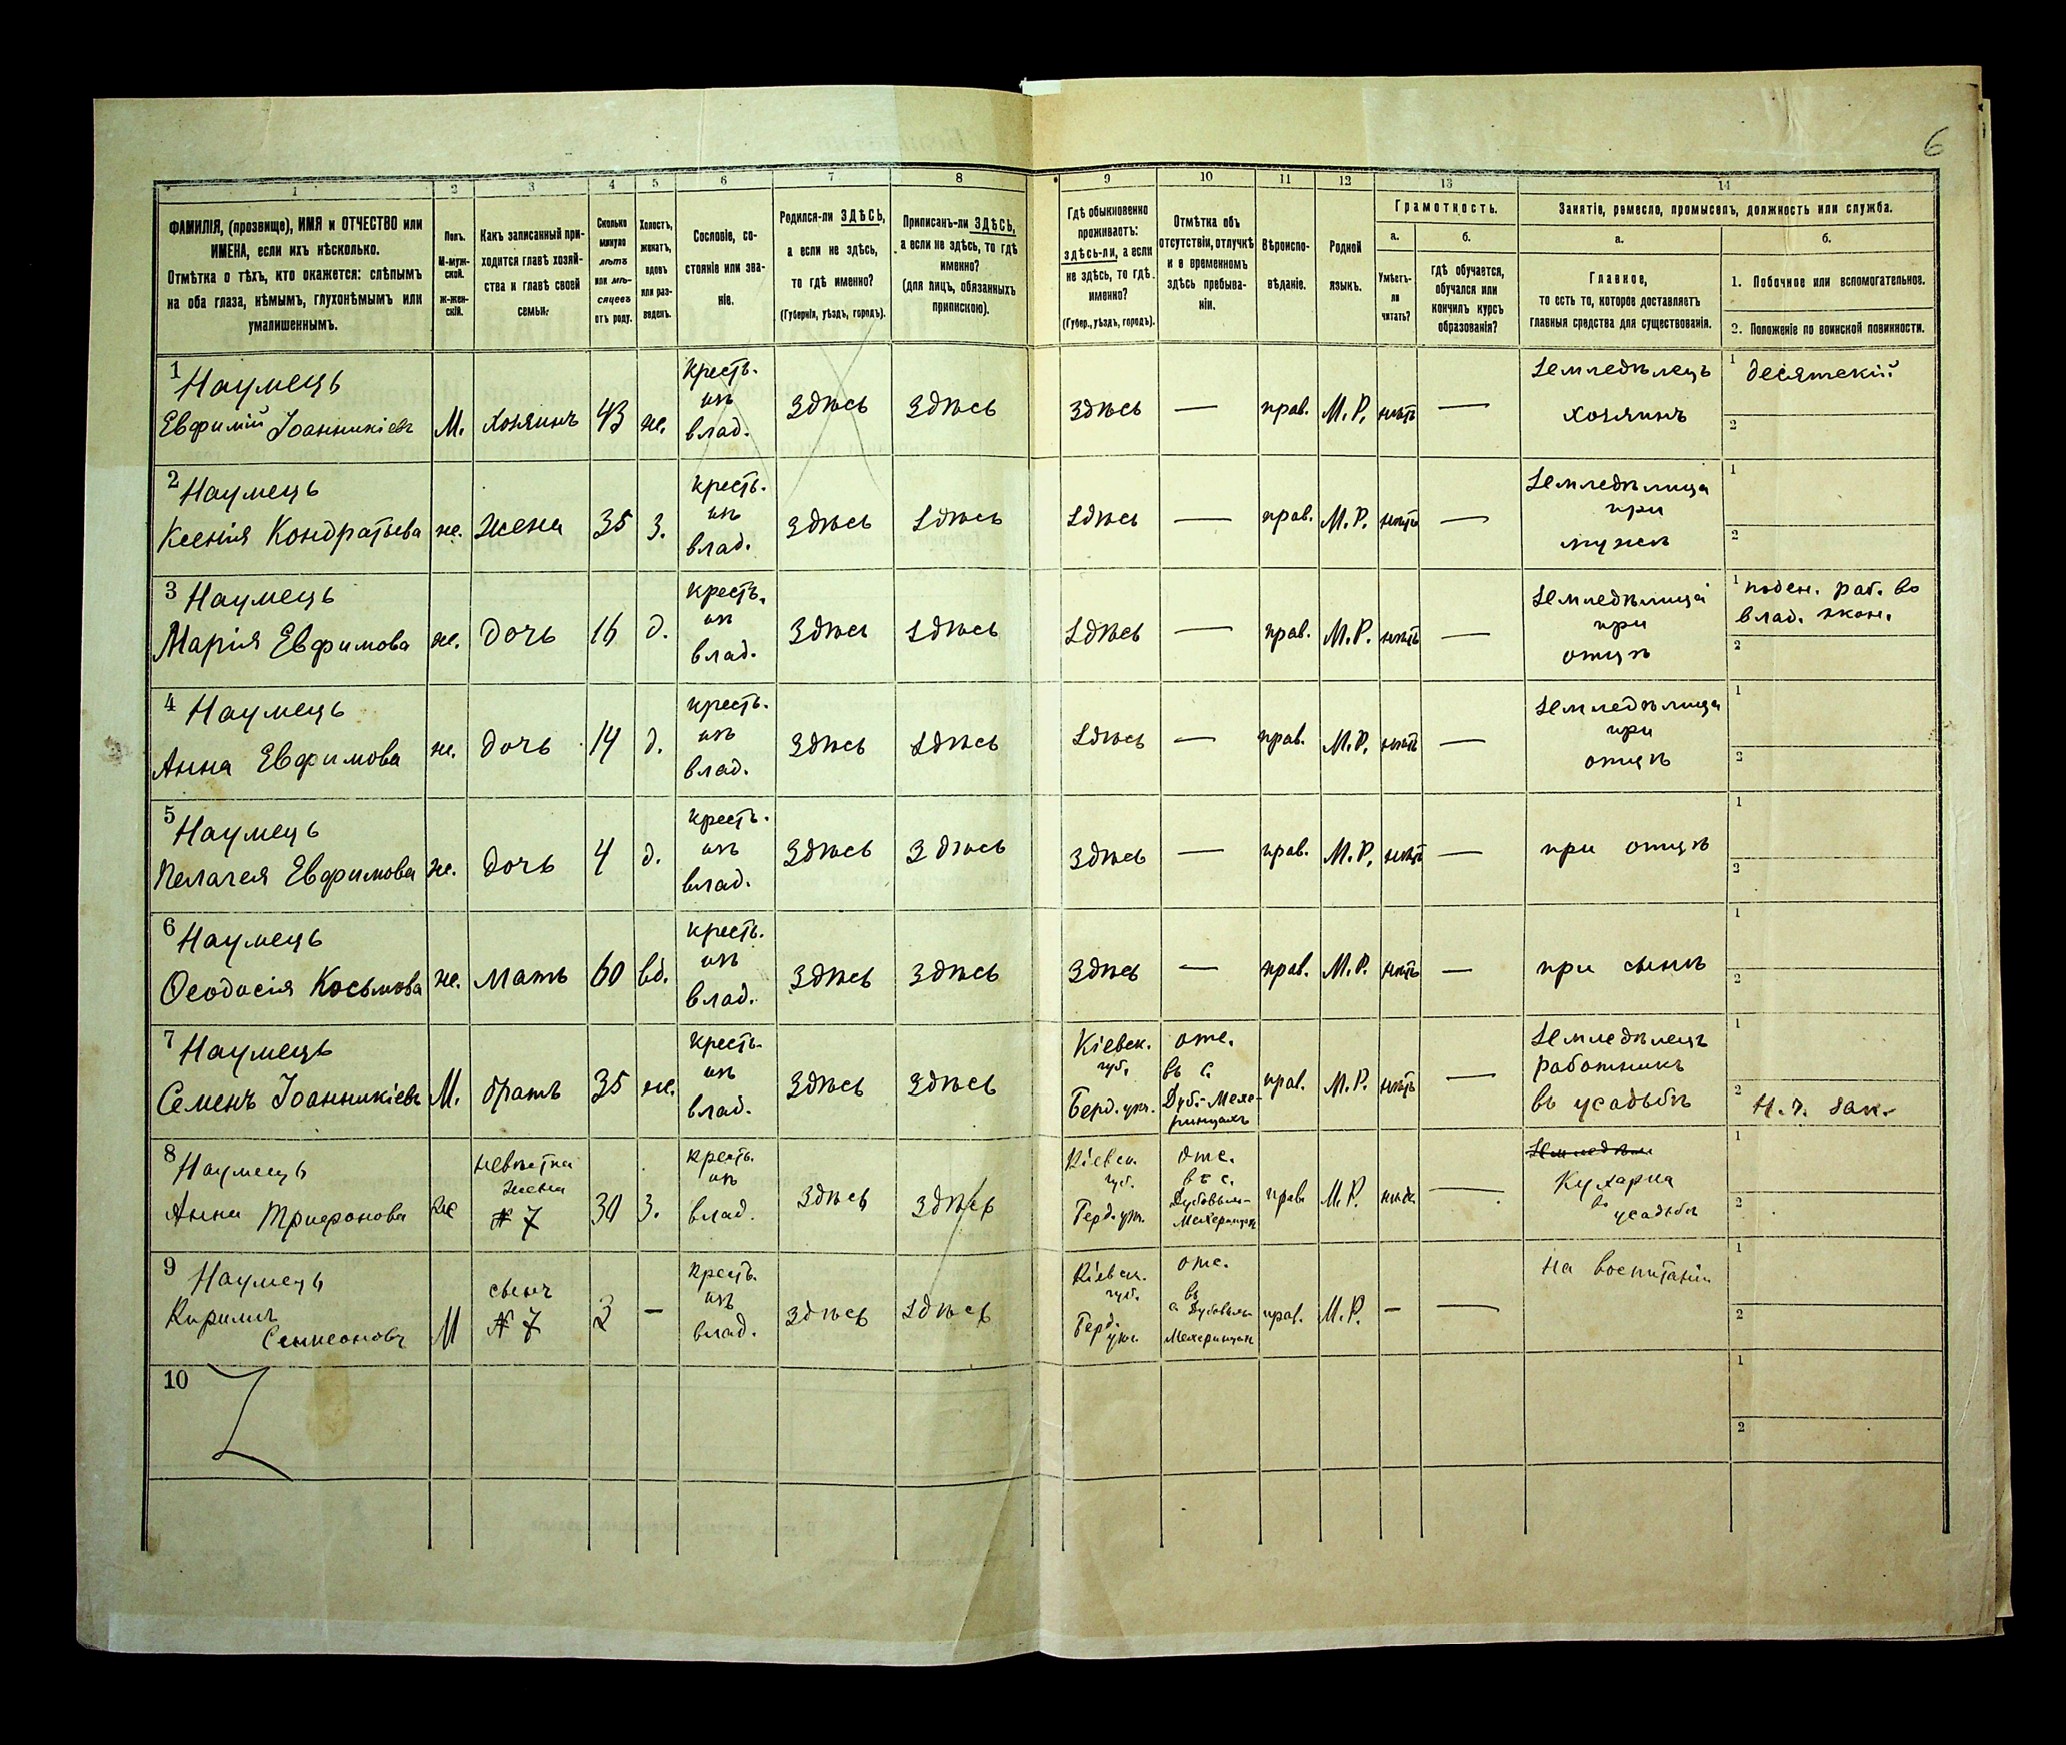 6
1 2 3 4 5 6 7 8 9 10 11 12 13 14
ФАМИЛІЯ, (прозвище), ИМЯ и ОТЧЕСТВО или
ИМЕНА, если ихъ нѣсколько.
Отмѣтка о тѣхъ, кто окажется: слѣпымъ
на оба глаза, нѣмымъ, глухонѣмымъ или
умалишеннымъ.
Полъ.
М-муж-
ской.
Ж-жен-
скій.
Какъ записанный при-
ходится главѣ хозяй-
ства и главѣ своей
семьи.
Сколько
минуло
лѣтъ
или мѣ-
сяцевъ
отъ роду.
Холостъ,
женатъ,
вдовъ
или раз-
веденъ.
Сословіе, со-
стояніе или зва-
ніе.
Родился-ли ЗДѢСЬ,
а если не здѣсь,
то гдѣ именно?
(Губернія, уѣздъ, городъ).
Приписанъ-ли ЗДѢСЬ,
а если не здѣсь, то гдѣ
именно?
(для лицъ, обязанныхъ
припискою).
Гдѣ обыкновенно
проживаетъ:
здѣсь-ли, а если
не здѣсь, то гдѣ
именно?
(Губер., уѣздъ, городъ).
Отмѣтка объ
отсутствіи, отлучкѣ
и о временномъ
здѣсь пребыва-
ніи.
Вѣроиспо-
вѣданіе.
Родной
языкъ.
Грамотность.
а.
Умѣетъ-
ли
читать?
б.
гдѣ обучается,
обучался или
кончилъ курсъ
образованія?
Занятіе, ремесло, промыселъ, должность или служба.
а.
Главное,
то есть то, которое доставляетъ
главныя средства для существованія.
б.
1. Побочное или вспомогательное.
2. Положеніе по воинской повинности.
1 Наумецъ
Евфимій Іоанникіевъ
М.
хозяинъ
43
же.
крест.
изъ
влад.
Здѣсь
Здѣсь
Здѣсь
—
прав.
М.Р.
нѣтъ
—
Земледѣлецъ
хозяинъ
1 десятскій
2
2 Наумецъ
Ксенія Кондратьева
же.
Жена
35
З.
крест.
изъ
влад.
Здѣсь
Здѣсь
Здѣсь
—
прав.
М.Р.
нѣтъ
—
Земледѣлица
при
мужѣ
1
2
3 Наумецъ
Марія Евфимова
же.
Дочь
16
д.
крест.
изъ
влад.
Здѣсь
Здѣсь
Здѣсь
—
прав.
М.Р.
нѣтъ
—
Земледѣлица
при
отцѣ
1 поден. раб. во
влад. экон.
2
4 Наумецъ
Анна Евфимова
же.
дочь
14
д.
крест.
изъ
влад.
Здѣсь
Здѣсь
Здѣсь
—
прав.
М.Р.
нѣтъ
—
Земледѣлица
при
отцѣ
1
2
5 Наумецъ
Пелагея Евфимова
же.
Дочь
4
д.
крест.
изъ
влад.
Здѣсь
Здѣсь
Здѣсь
—
прав.
М.Р.
нѣтъ
—
при отцѣ
1
2
6 Наумецъ
Ѳеодосія Косьмова
же.
мать
60
вд.
крест.
изъ
влад.
Здѣсь
Здѣсь
Здѣсь
—
прав.
М.Р.
нѣтъ
—
при сынѣ
1
2
7 Наумецъ
Семенъ Іоанникіевъ
М.
братъ
35
же.
крест.
изъ
влад.
Здѣсь
Здѣсь
Кіевск.
губ.
Берд. уѣз.
отс.
въ с.
Дуб.-Мехе-
ринцахъ
прав.
М.Р.
нѣтъ
—
Земледѣлецъ
работникъ
въ усадьбѣ
1
2 Н. ч. зап.
8 Наумецъ
Анна Трифонова
же
невѣстка
жена
№ 7
30
З.
крест.
изъ
влад.
Здѣсь
Здѣсь
Кіевск.
губ.
Берд. уѣз.
отс.
въ с.
Дубовыхъ-
Мехеринцах
прав.
М.Р.
нѣтъ
—
Кухарка
въ
усадьбѣ
1
2
9 Наумецъ
Кирилъ
Симеоновъ
М
сынъ
№ 7
2
—
крест.
изъ
влад.
Здѣсь
Здѣсь
Кіевск.
губ.
Берд.
уѣз.
отс.
въ
с. Дубовых-
Мехеринцах
прав.
М.Р.
—
—
на воспитаніи
1
2
10
1
2